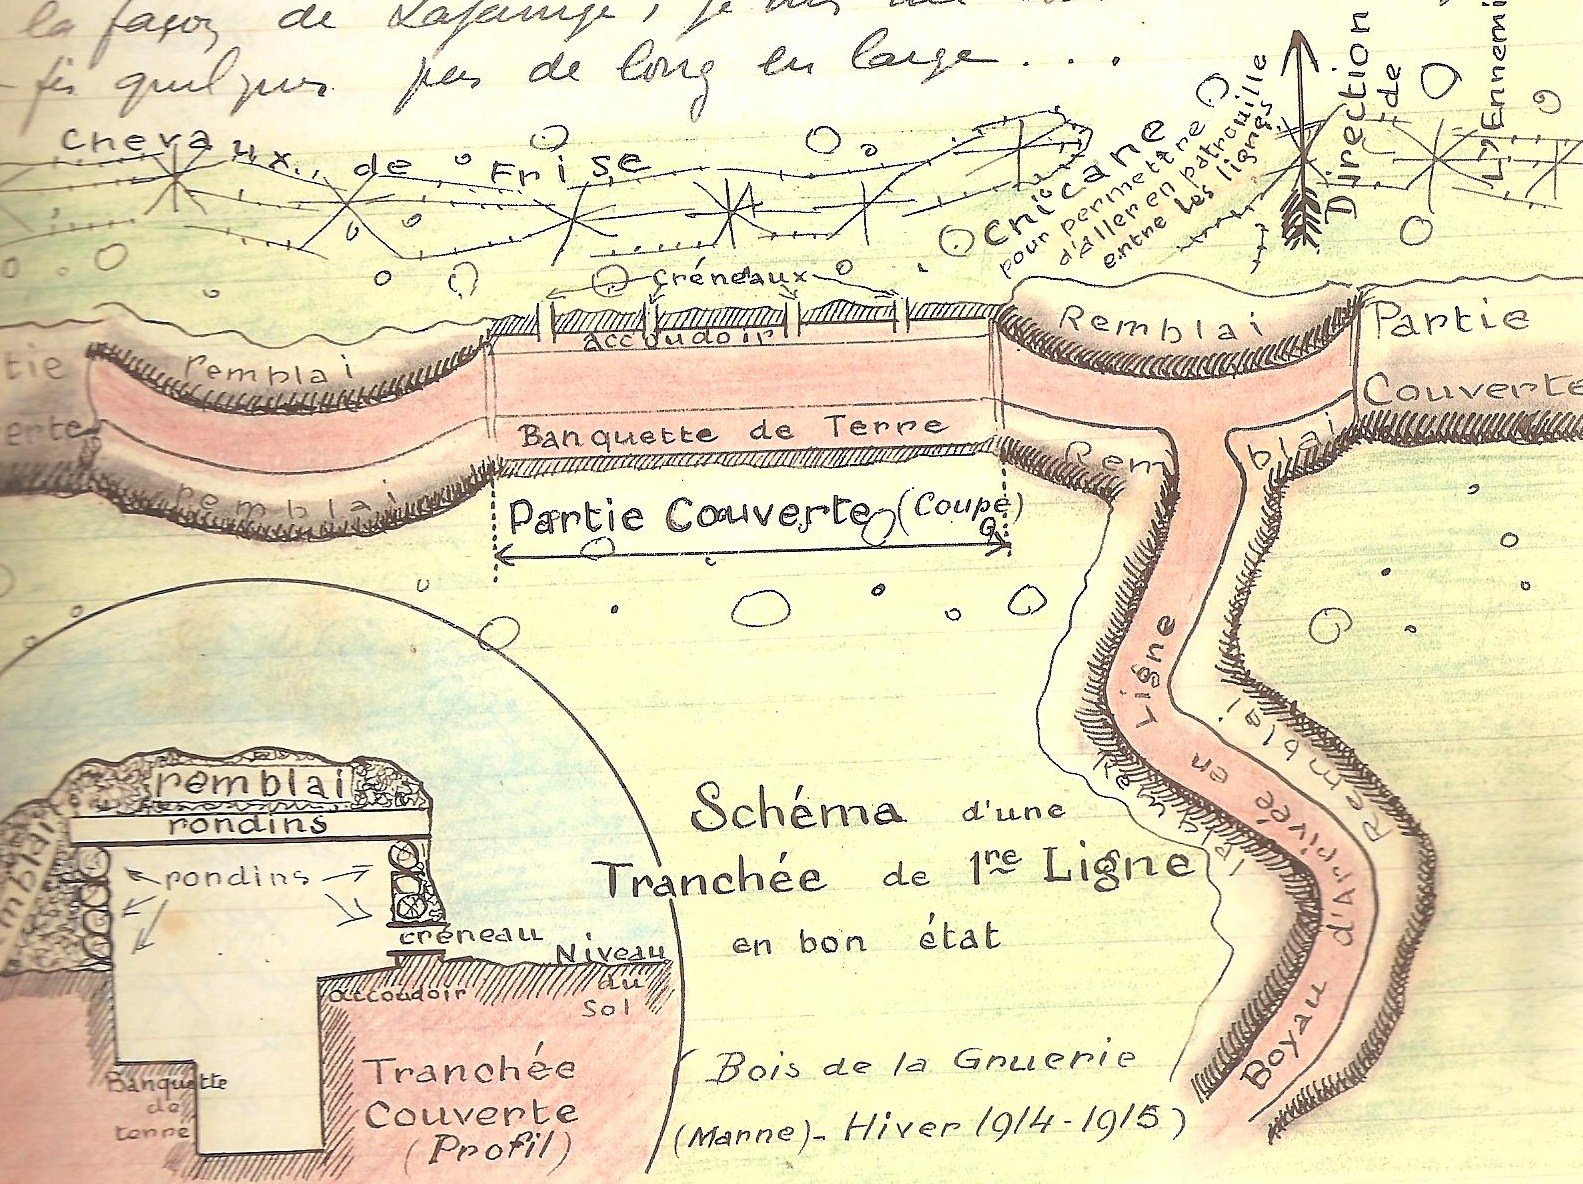 la façon de Lafarge, je
fis quelques pas de long en large . . .
Chevaux de Frise
Chicane
pour permettre
d'aller en patrouille
entre les lignes
Direction
de
L'Ennemi
Créneaux
accoudoir
remblai
Remblai
Partie
Couverte
tie
erte
Banquette de Terre
remblai
Rem blai
Partie Couverte (Coupe)
Ligne
en
d'Arrivée
Boyau
Remblai
Remblai
remblai
rondins
remblai
rondins
créneau
Niveau
du
Sol
accoudoir
Banquette
de
terre
Tranchée
Couverte
(Profil)
Schéma d'une
Tranchée de 1re Ligne
en bon état
(Bois de la Gruerie
(Marne) - Hiver 1914-1915)